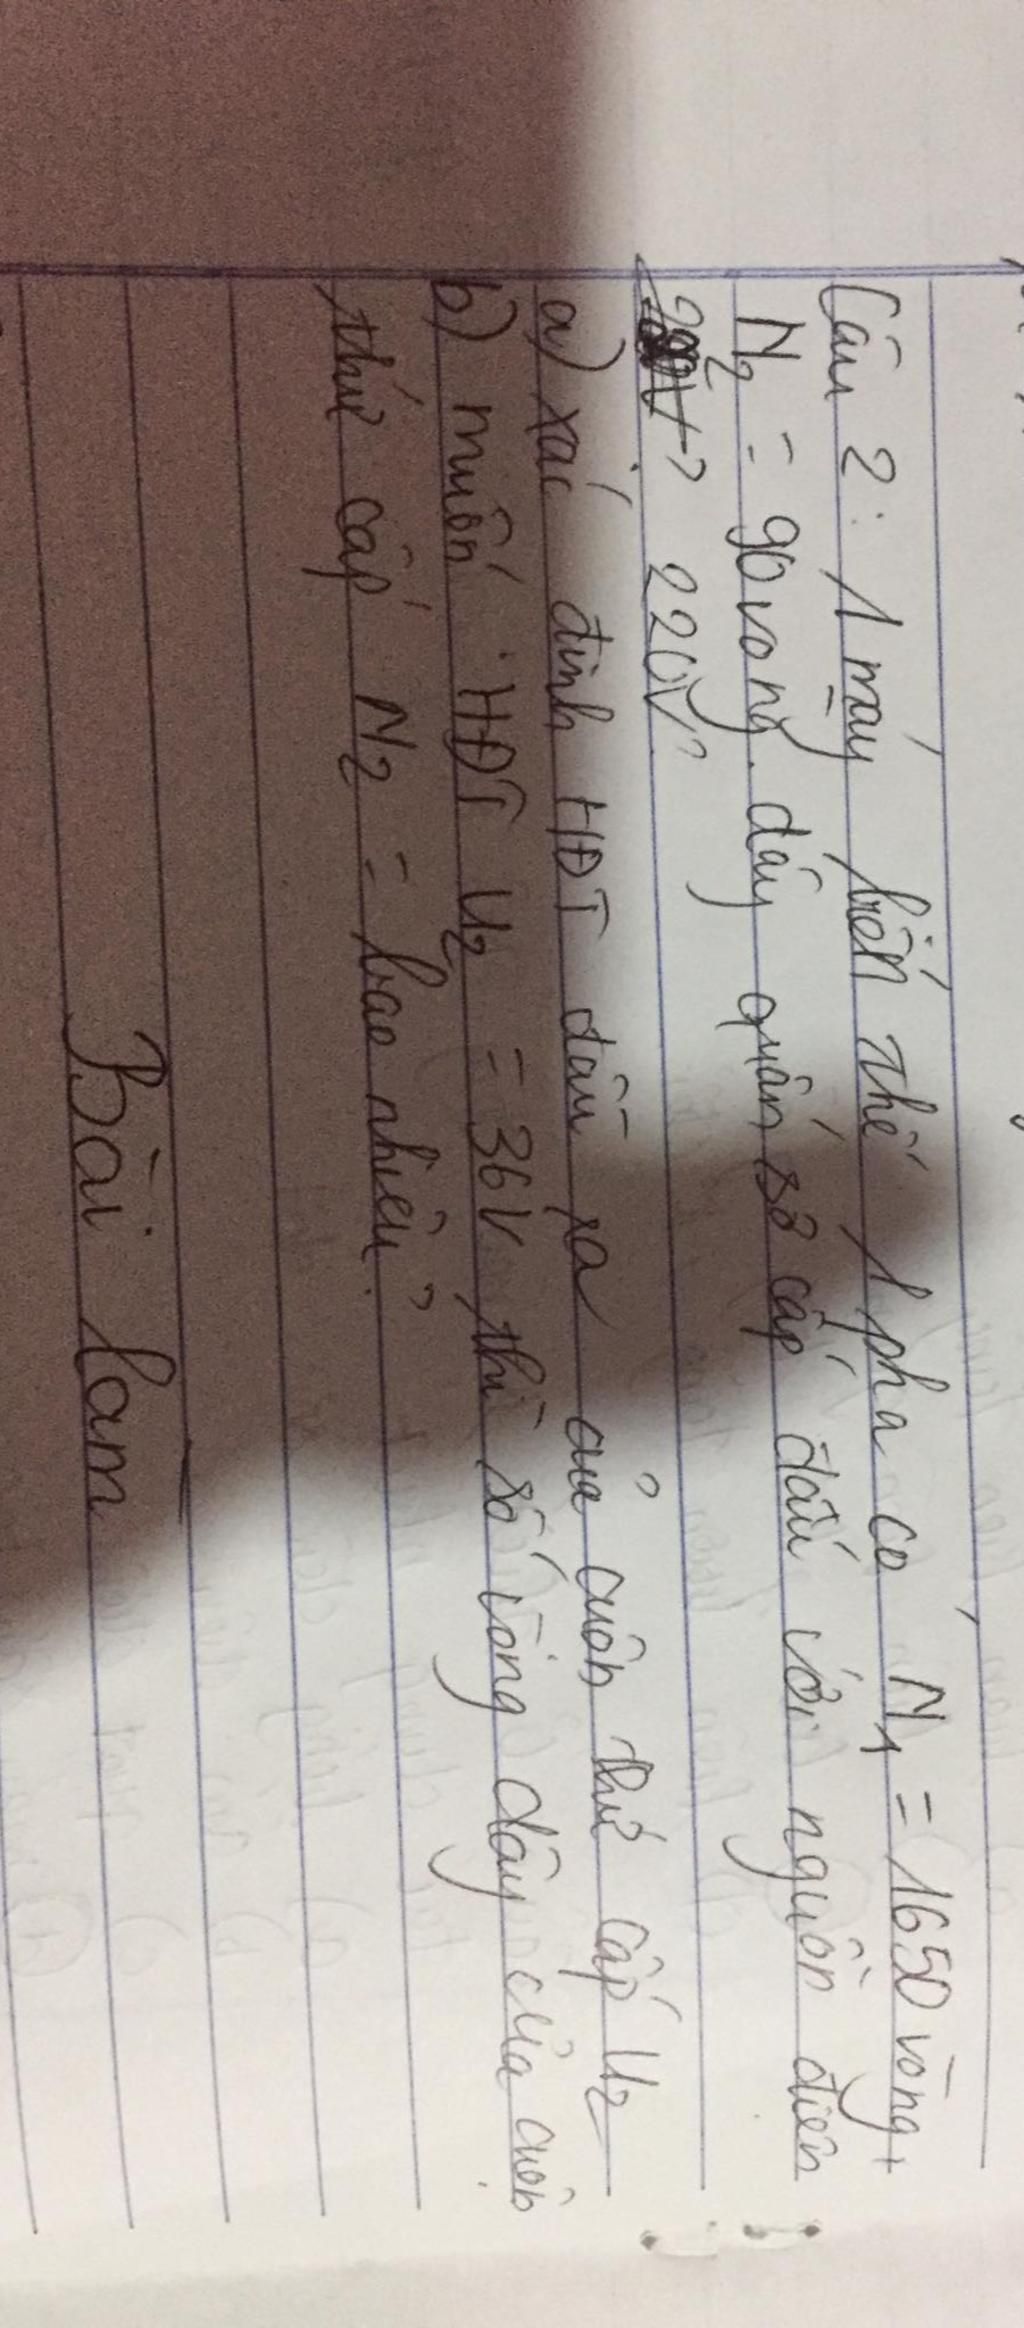 Câu 2: 1 máy biến thế 1 pha có N1 = 1650 vòng +
N2 = 90 vong dây quấn sơ cấp đấu với nguồn điên
220V?
a) xác đinh HĐT đầu ra của cuôn thứ cấp U2
b) muốn HĐT U2 = 36V thì số vòng dây của cuôn
thứ cấp N2 = bao nhiêu?
Bài làm